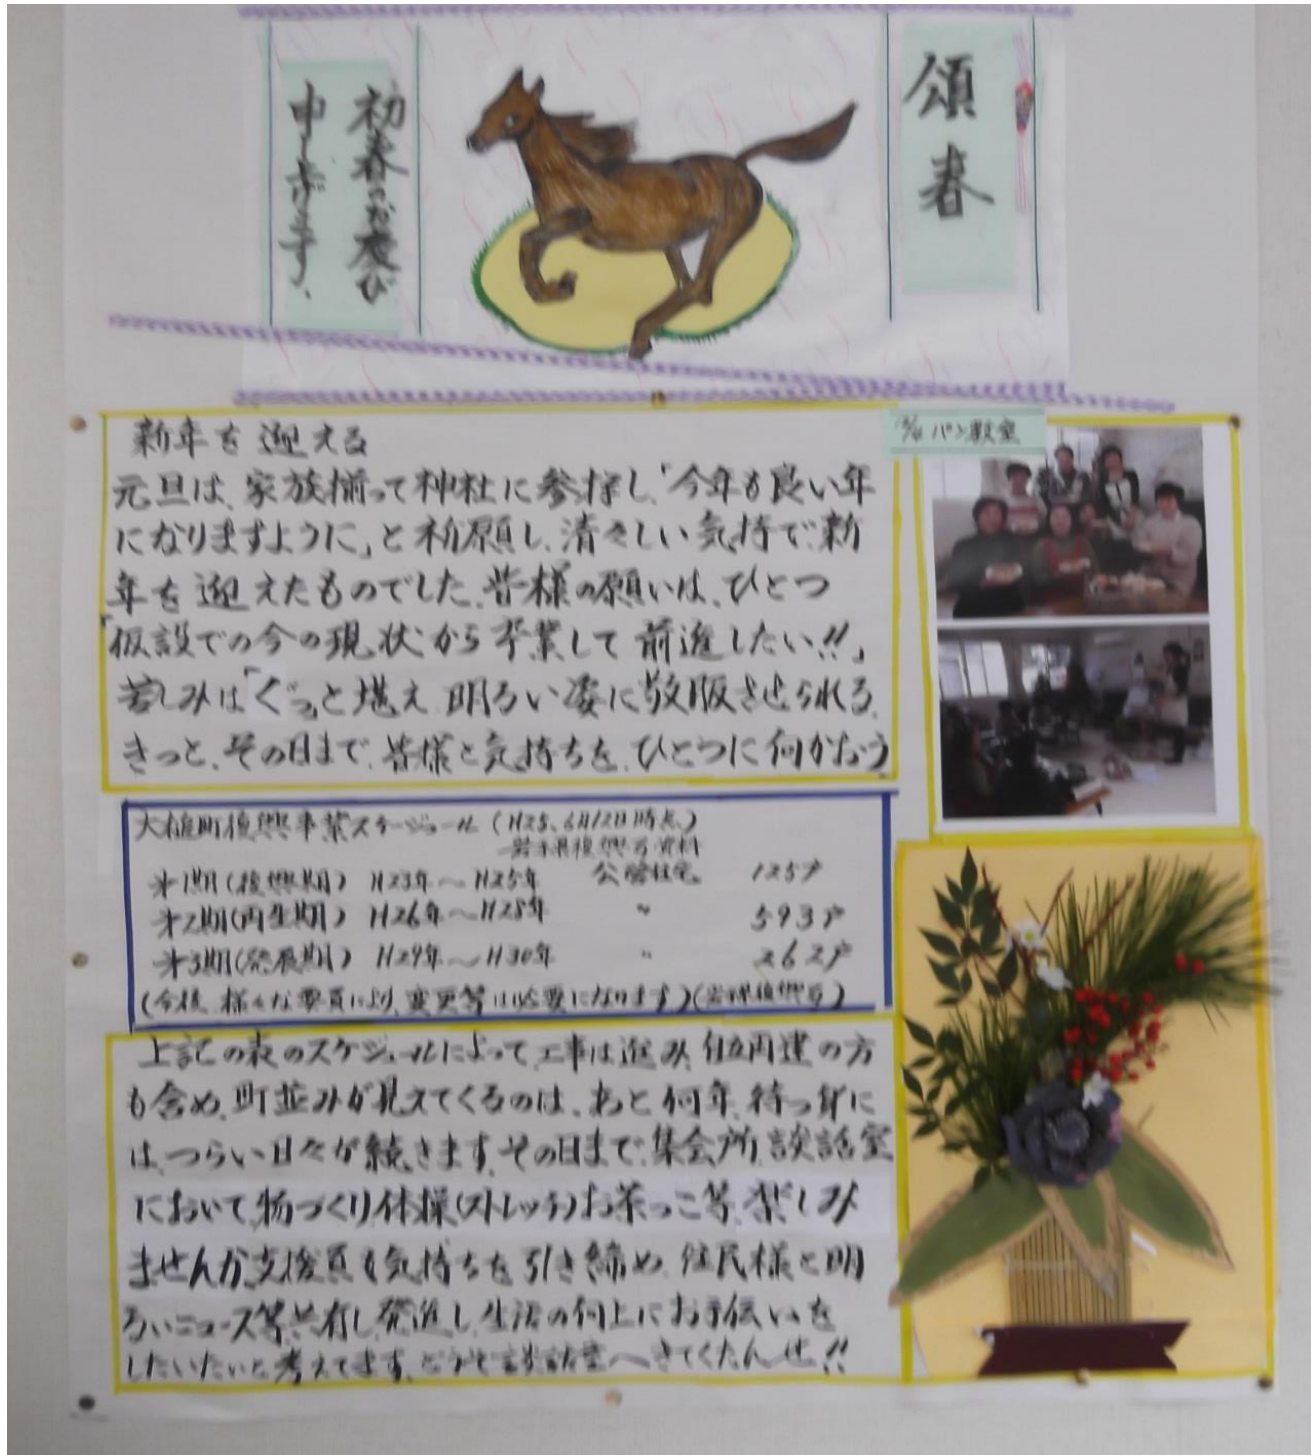 頌春
初春のお慶び
申し上げます、
新年を迎える
元旦は、家族揃って神社に参拝し、「今年も良い年
になりますように」と祈願し、清々しい気持で新
年を迎えたものでした。皆様の願いは、ひとつ
「仮設での今の現状から卒業して前進したい!!」
苦しみは「ぐっ」と堪え明るい姿に敬服させられる。
きっと、その日まで、皆様と気持ちを、ひとつに向かおう
パン教室
大槌町復興事業スケージュール (H25、6月12日時点)
岩手県復興局資料
第1期(復興期) H23年〜H25年 公営住宅 125戸
第2期(再生期) H26年〜H28年 〃 593戸
第3期(発展期) H29年〜H30年 〃 262戸
(今後、様々な要員により、変更等は必要になります)(岩手県復興局)
上記の表のスケジュールによって工事は進み、自立再建の方
も含め、町並みが見えてくるのは、あと何年、待つ身に
は、つらい日々が続きます。その日まで、集会所、談話室
において、物づくり体操(ストレッチ)お茶っこ等、楽しみ
ませんか。支援員も気持ちを引き締め、住民様と明
るいニュース等共有し、発進し、生活の向上にお手伝いを
したいたいと考えてます。どうぞ談話室へきてくたんせ!!